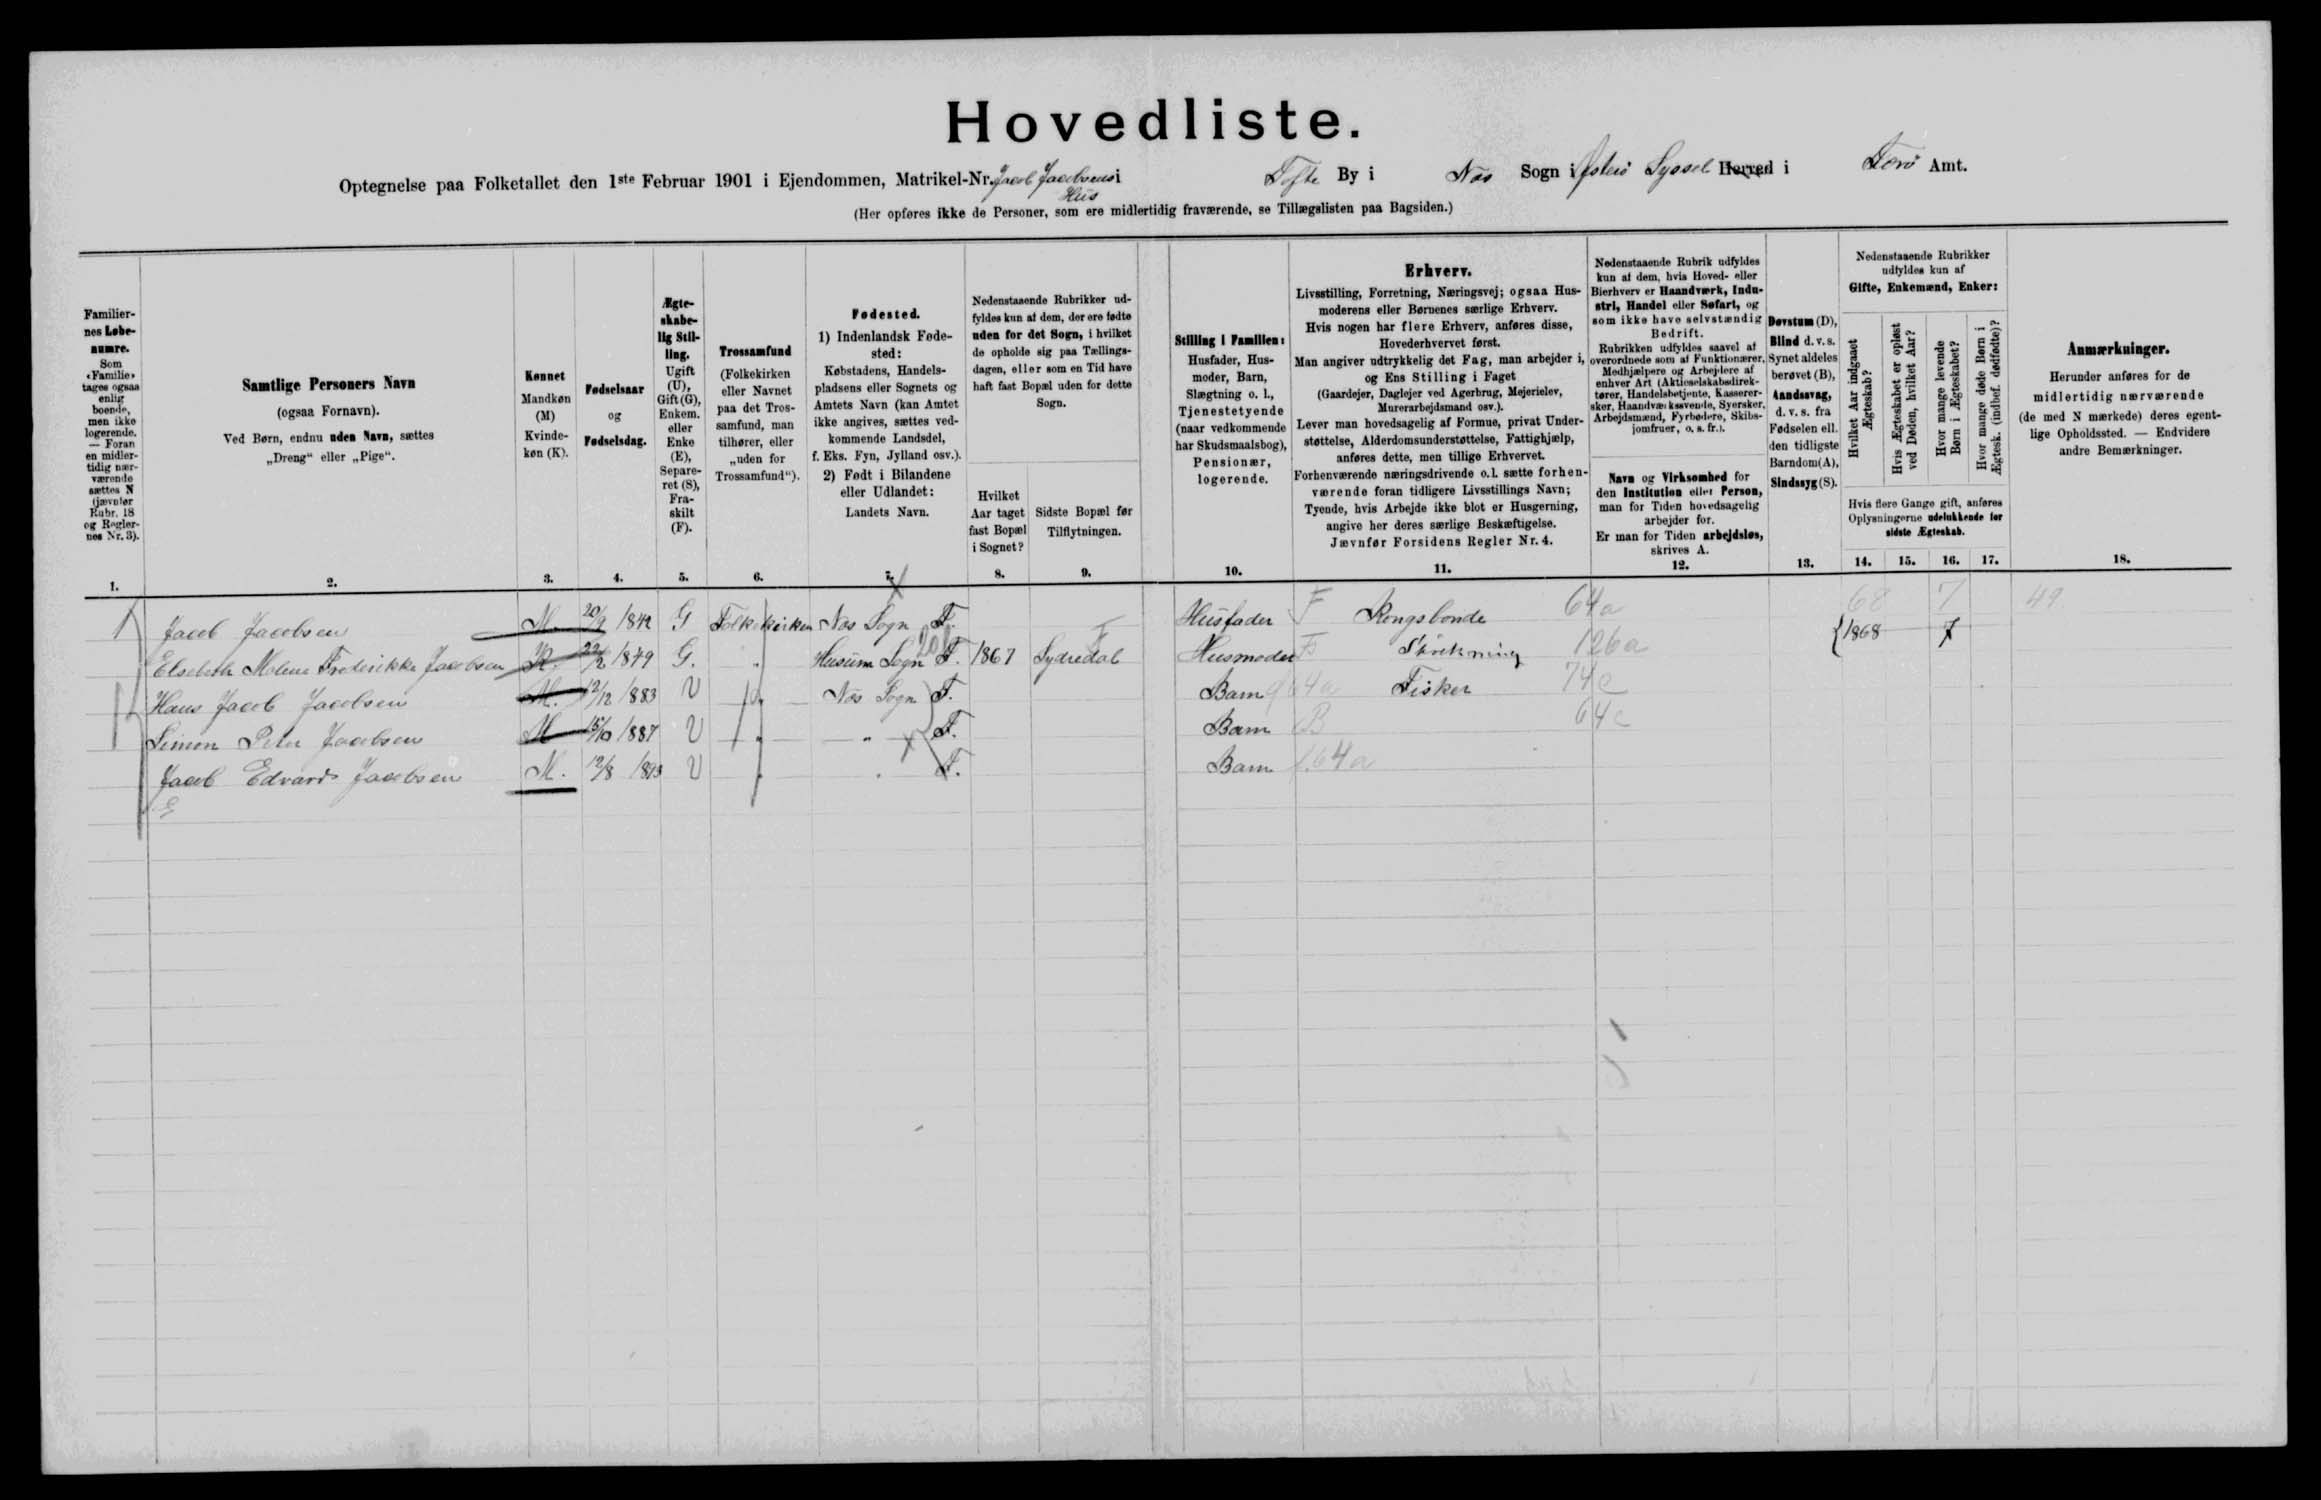 Hovedliste.
Optegnelse paa Folketallet den 1ste Februar 1901 i Ejendommen, Matrikel-Nr. Jacob Jacobsens Hus i Tofte By i Næs Sogn i Østerø Syssel Herred i Færø Amt.
(Her opføres ikke de Personer, som ere midlertidig fraværende, se Tillægslisten paa Bagsiden.)
Familiernes Løbenumre. Som «Familie» tages ogsaa enlig boende, men ikke logerende. — Foran en midlertidig nærværende sættes N (jævnfør Rubr. 18 og Reglernes Nr. 3).
Samtlige Personers Navn (ogsaa Fornavn). Ved Børn, endnu uden Navn, sættes „Dreng“ eller „Pige“.
Kønnet Mandkøn (M) Kvindekøn (K).
Fødselsaar og Fødselsdag.
Ægteskabelig Stilling. Ugift (U), Gift (G), Enkem. eller Enke (E), Separeret (S), Fraskilt (F).
Trossamfund (Folkekirken eller Navnet paa det Trossamfund, man tilhører, eller „uden for Trossamfund“).
Fødested. 1) Indenlandsk Fødested: Købstadens, Handelspladsens eller Sognets og Amtets Navn (kan Amtet ikke angives, sættes vedkommende Landsdel, f. Eks. Fyn, Jylland osv.). 2) Født i Bilandene eller Udlandet: Landets Navn.
Nedenstaaende Rubrikker udfyldes kun af dem, der ere fødte uden for det Sogn, i hvilket de opholde sig paa Tællingsdagen, eller som en Tid have haft fast Bopæl uden for dette Sogn.
Hvilket Aar taget fast Bopæl i Sognet?
Sidste Bopæl før Tilflytningen.
Stilling i Familien: Husfader, Husmoder, Barn, Slægtning o. l., Tjenestetyende (naar vedkommende har Skudsmaalsbog), Pensionær, logerende.
Erhverv. Livsstilling, Forretning, Næringsvej; ogsaa Husmoderens eller Børnenes særlige Erhverv. Hvis nogen har flere Erhverv, anføres disse, Hovederhvervet først. Man angiver udtrykkelig det Fag, man arbejder i, og Ens Stilling i Faget (Gaardejer, Daglejer ved Agerbrug, Mejerielev, Murerarbejdsmand osv.). Lever man hovedsagelig af Formue, privat Understøttelse, Alderdomsunderstøttelse, Fattighjælp, anføres dette, men tillige Erhvervet. Forhenværende næringsdrivende o. l. sætte forhenværende foran tidligere Livsstillings Navn; Tyende, hvis Arbejde ikke blot er Husgerning, angive her deres særlige Beskæftigelse. Jævnfør Forsidens Regler Nr. 4.
Nedenstaaende Rubrik udfyldes kun af dem, hvis Hoved- eller Bierhverv er Haandværk, Industri, Handel eller Søfart, og som ikke have selvstændig Bedrift. Rubrikken udfyldes saavel af overordnede som af Funktionærer, Medhjælpere og Arbejdere af enhver Art (Aktieselskabsdirektører, Handelsbetjente, Kasserersker, Haandværkssvende, Syersker, Arbejdsmænd, Fyrbødere, Skibsjomfruer, o. s. fr.).
Navn og Virksomhed for den Institution eller Person, man for Tiden hovedsagelig arbejder for. Er man for Tiden arbejdsløs, skrives A.
Døvstum (D), Blind d. v. s. Synet aldeles berøvet (B), Aandssvag, d. v. s. fra Fødselen ell. den tidligste Barndom (A), Sindssyg (S).
Nedenstaaende Rubrikker udfyldes kun af Gifte, Enkemænd, Enker:
Hvilket Aar indgaaet Ægteskab?
Hvis Ægteskabet er opløst ved Døden, hvilket Aar?
Hvor mange levende Børn i Ægteskabet?
Hvor mange døde Børn i Ægtesk. (indbef. dødfødte)?
Hvis flere Gange gift, anføres Oplysningerne udelukkende for sidste Ægteskab.
Anmærkninger. Herunder anføres for de midlertidig nærværende (de med N mærkede) deres egentlige Opholdssted. — Endvidere andre Bemærkninger.
1. 2. 3. 4. 5. 6. 7. 8. 9. 10. 11. 12. 13. 14. 15. 16. 17. 18.
Jacob Jacobsen M. 20/9 1842 G Folkekirken Næs Sogn F. Husfader F Kongsbonde 64a 68 7 49
Elsebeth Malene Frederikke Jacobsen K. 22/2 1849 G. " Husum Sogn F. 1867 Sydredal Husmoder 126a 1868 7
Hans Jacob Jacobsen M. 12/12 1883 U " Næs Sogn F. Barn 64a Fisker 74c
Simon Peter Jacobsen M 15/10 1887 U " " F. Barn B 64c
Jacob Edvard Jacobsen M. 12/8 1893 U " " F. Barn 64a